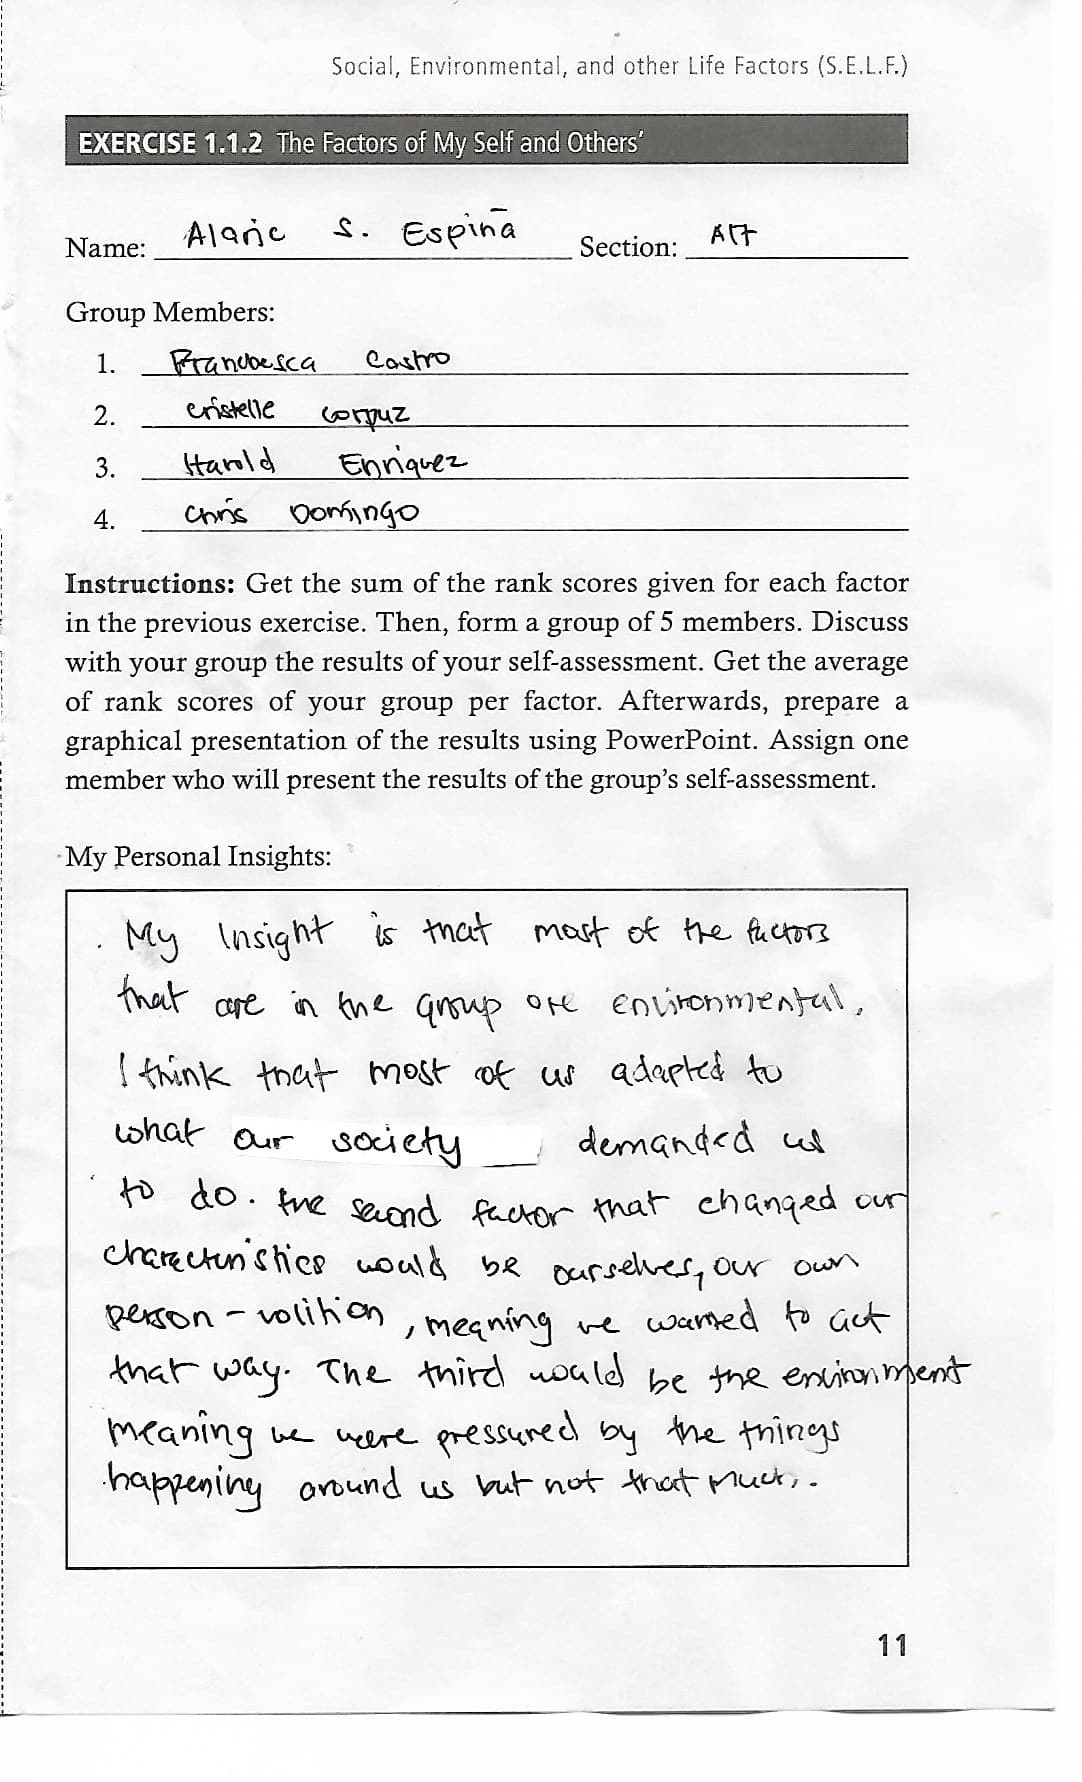 Social, Environmental, and other Life Factors (S.E.L.F.)
EXERCISE 1.1.2 The Factors of My Self and Others'
Name: Alaric S. Espina Section: A17
Group Members:
1. Francesca Castro
2. Cristelle Corpuz
3. Harold Enriquez
4. Chris Domingo
Instructions: Get the sum of the rank scores given for each factor
in the previous exercise. Then, form a group of 5 members. Discuss
with your group the results of your self-assessment. Get the average
of rank scores of your group per factor. Afterwards, prepare a
graphical presentation of the results using PowerPoint. Assign one
member who will present the results of the group's self-assessment.
My Personal Insights:
My Insight is that most of the factors
that are in the group are environmental,
I think that most of us adapted to
what our society demanded us
to do. the second factor that changed our
charecteristics would be ourselves, our own
person-volition, meaning we wanted to act
that way. The third would be the environment
meaning we were pressured by the things
happening around us but not that much.
11